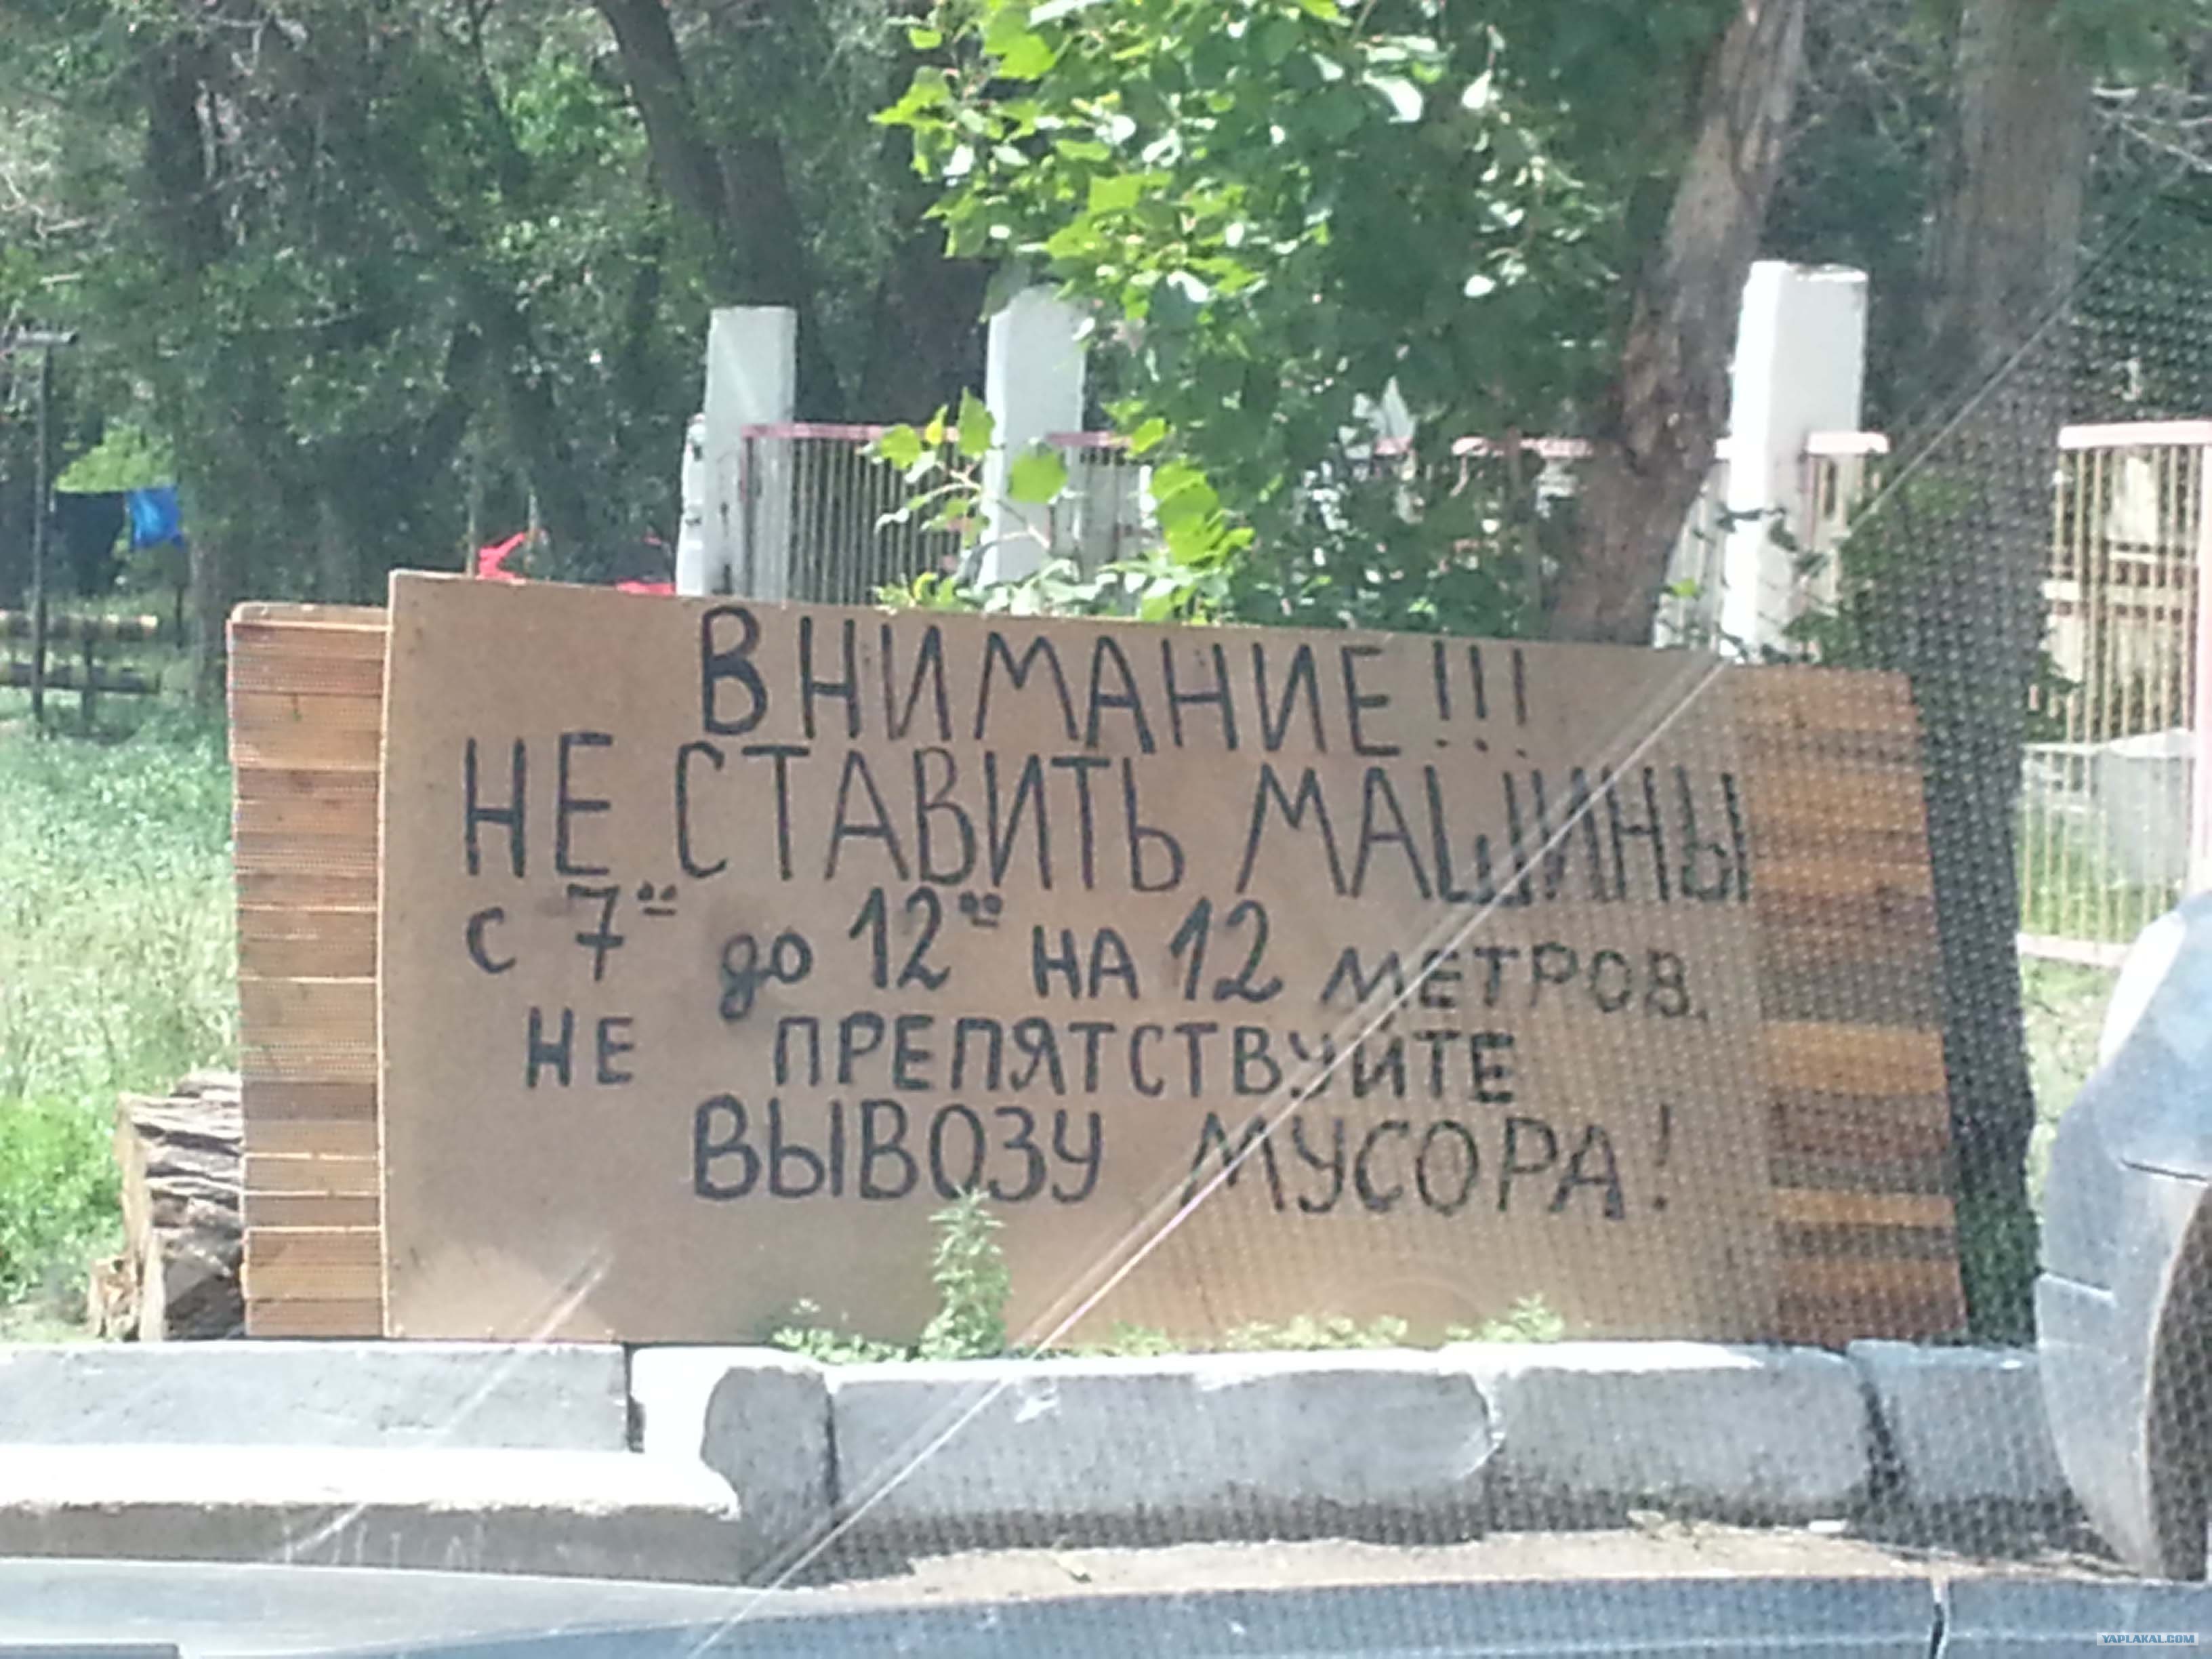 ВНИМАНИЕ!!!
НЕ СТАВИТЬ МАШИНЫ
с 7⁰⁰ до 12⁰⁰ НА 12 МЕТРОВ.
НЕ ПРЕПЯТСТВУЙТЕ
ВЫВОЗУ МУСОРА!
YAPLAKAL.COM